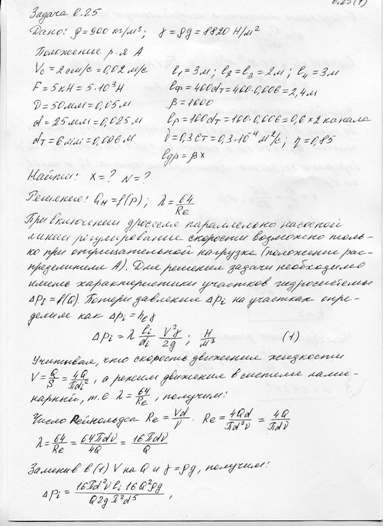 Задача 2.25
Дано: ρ=900 кг/м³; γ=ρg=8820 Н/м³
Положение р-я А
Vс=2см/с=0,02м/с l₁=3м; l₂=l₃=2м; l₄=3м
F=5кН=5·10³Н lф=400dт=400·0,006=2,4м
D=50мм=0,05м β=1000
d=25мм=0,025м lр=100dт=100·0,006=0,6 × 2 канала
dт=6мм=0,006м ν=0,3 Ст=0,3·10⁻⁴м²/с; η=0,85
lдр=βx
Найти: x=? N=?
Решение: Qн=f(p); λ=64/Re
При включении дросселя параллельно насосной
линии регулирование скорости возможно толь-
ко при отрицательной нагрузке (положение рас-
пределителя А). Для решения задачи необходимо
иметь характеристики участков гидросистемы
Δpᵢ=f(Q). Потери давления Δpᵢ на участках опре-
делим как Δpᵢ=hᵢγ
Δpᵢ=λ lᵢ/dᵢ V²γ/2g; Н/м² (1)
Учитывая, что скорость движения жидкости
V=Q/S=4Q/πd², а режим движения в системе лами-
нарный, т.е. λ=64/Re, получим:
Число Рейнольдса Re=Vd/ν. Re=4Qd/πd²ν=4Q/πdν
λ=64/Re=64πdν/4Q=16πdν/Q
Заменив в (1) V на Q и γ=ρg, получим:
Δpᵢ=16πdνlᵢ16Q²ρg/Q2gπ²d⁵,